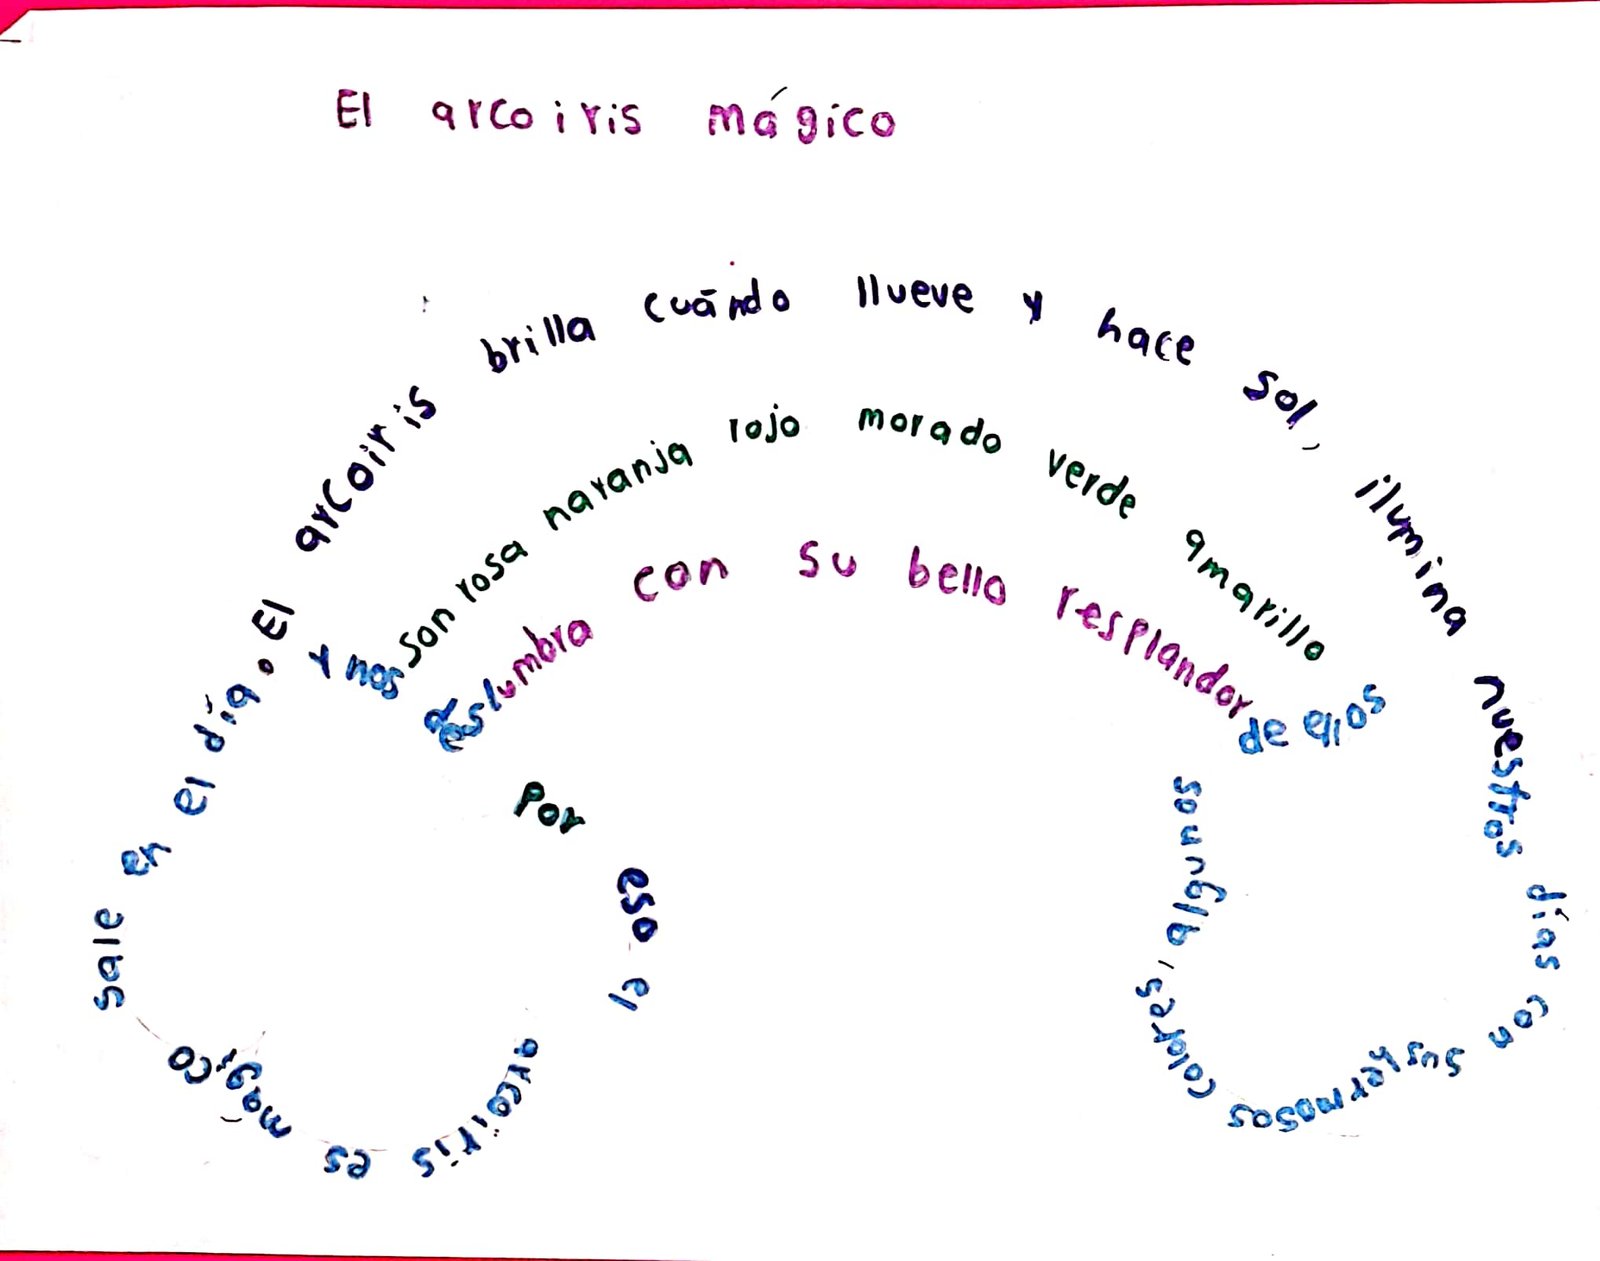 El arcoiris mágico
El arcoiris brilla cuándo llueve y hace sol, ilumina nuestros días con sus hermosos colores, algunos de ellos
son rosa naranja rojo morado verde amarillo
y nos deslumbra con su bello resplandor
Por eso el arcoiris es mágico
sale en el día.